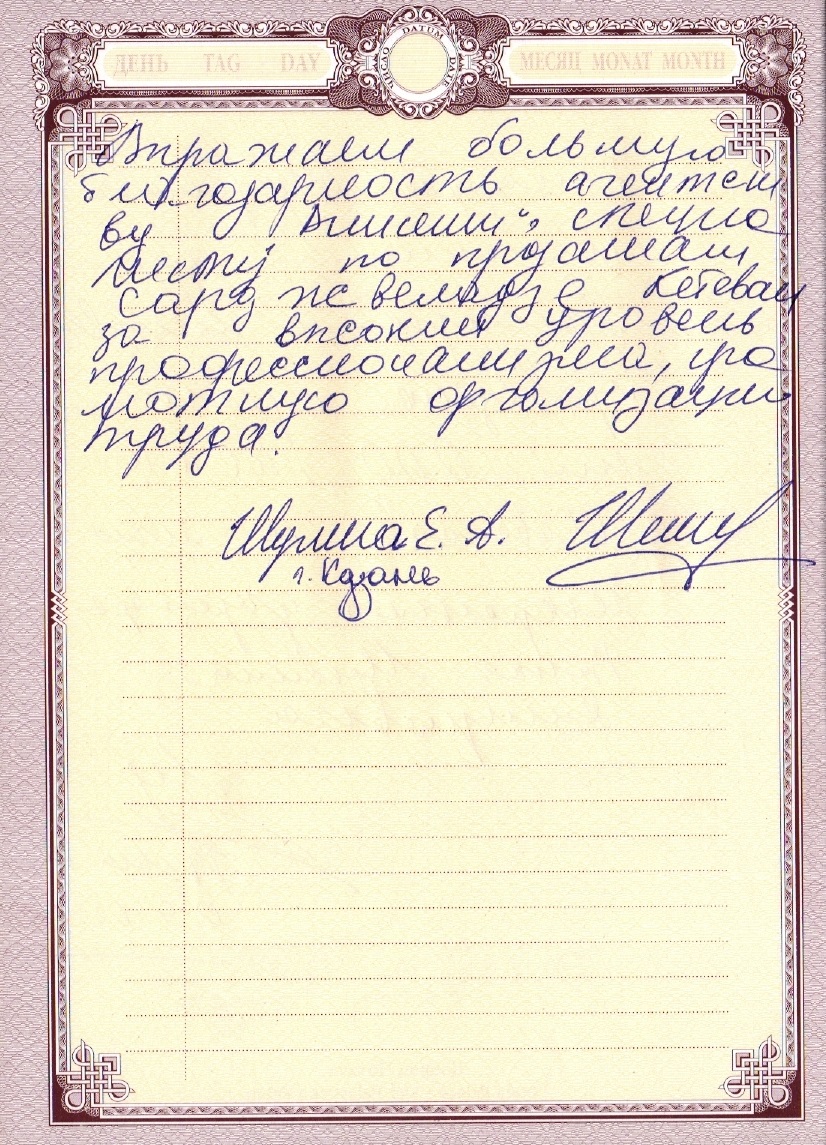 ДЕНЬ TAG DAY ЧИСЛО DATUM DATE МЕСЯЦ MONAT MONTH
Выражаем большую
благодарность агентст
ву специа
листу по продажам
Сарджвеладзе Кетеван
за высокий уровень
профессионализма, гра
мотную организацию
труда.
Е. А.
г. Казань